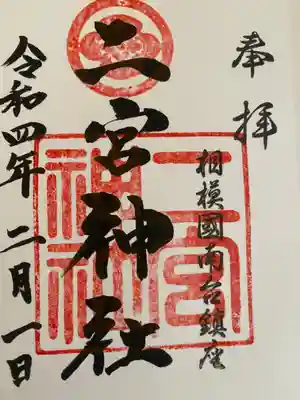 奉拝
相模國南台鎮座
二宮神社
二宮神社
令和四年二月一日